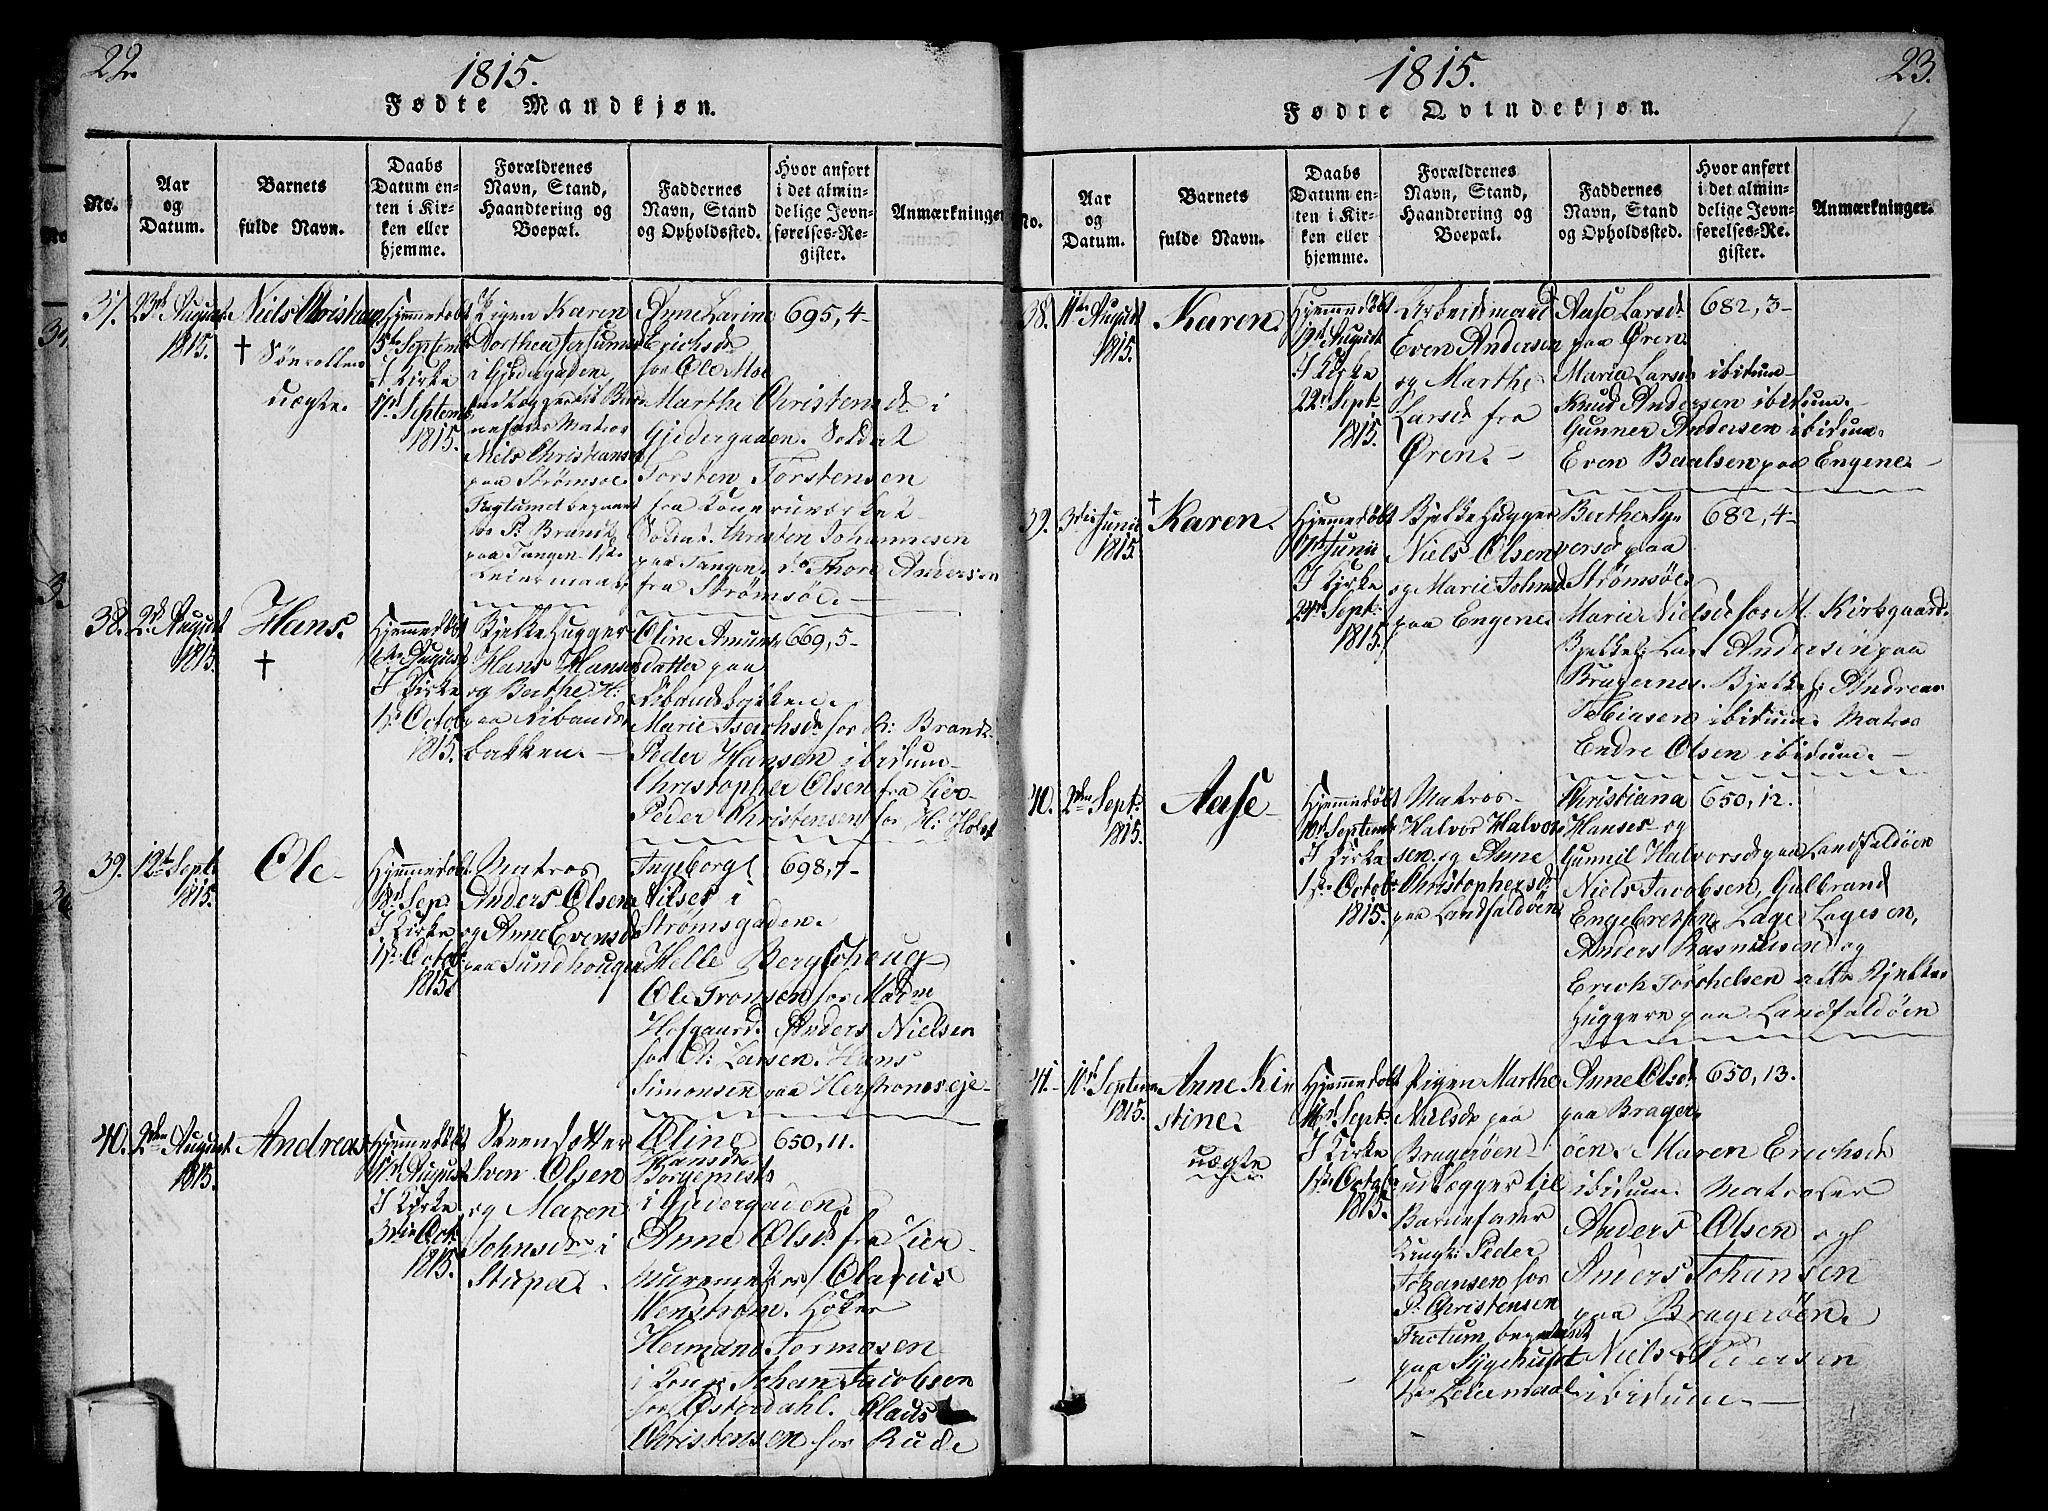 22.
1815.
Fødte Mandkjøn.
No.
Aar
og
Datum.
Barnets
fulde Navn.
Daabs
Datum en-
ten i Kir-
ken eller
hjemme.
Forældrenes
Navn, Stand,
Haandtering og
Boepæl.
Faddernes
Navn, Stand
og Opholdssted.
Hvor anført
i det almin-
delige Jevn-
førelses-Re-
gister.
Anmærkninger
37.
23de August
1815.
Niels Christian
†
uægte.
Hjemmedøbt
5te Septemb
I Kirke
17de Septemb
1815.
Pigen Karen
Dorthea
i Gjedergaden
Matros
Niels Christiansen
paa Strømsøe
begaaet
P: Brandt
paa Tangen 1ste
Leiermaal
Anne Larine
Erichsd
for Ole Moe
Marthe Christensd i
Gjedergaden. Soldat
Torsten Torstensen
fra
Soldat Christen Johannesen
paa Tangen. do Thore Andersen
fra Strømsøe.
695, 4-
38.
2de August
1815.
Hans.
†
Hjemmedøbt
6te August
I Kirke
1ste Octob
1815.
BjelkeHugger
Hans Hansen
og Berthe H:
paa Riband
bakken.
Oline Amunds
datter paa
Ribandsbakken.
Marie Isachsd for R: Brandt.
Peder Hansen ibidum
Christopher Olsen fra Lier
Peder Christensen for H: Holst
669, 5-
39.
12te Sept:
1815.
Ole
Hjemmedøbt
18de Sep
I Kirke
1ste Octob:
1815.
Matros
Anders Olsen
og Anne Evensd
paa Sundhougen
Ingeborg
Nilses i
Strømsgaden.
Helle Bergschoug
Ole Tronsen for Madme
Hofgaard. Anders Nielsen
for A: Larsen. Hans
Simonsen paa Herstromseje
698, 7-
40.
2den August
1815.
Andreas
Hjemmedøbt
17de August
I Kirke
3die Oct:
1815.
Sven Olsen
og Maren
Johnsd i
Stupa
Oline
Hansd
Borgemest
i Gjedergaden
Anne Olsd fra Lier
for Olaus
Wenstrøm. Høker
Hermand Tormosen
i Johan Jacobsen
for Østerdahl. Claus
Christensen for Rude
650, 11.
23.
1815.
Fødte Qvindekjøn.
No.
Aar
og
Datum.
Barnets
fulde Navn.
Daabs
Datum en-
ten i Kir-
ken eller
hjemme.
Forældrenes
Navn, Stand,
Haandtering og
Boepæl.
Faddernes
Navn, Stand
og Opholdssted.
Hvor anført
i det almin-
delige Jevn-
førelses-Re-
gister.
Anmærkninger.
38.
11te August
1815.
Karen.
Hjemmedøbt
19de August
I Kirke
22de Sept
1815.
Arbeidsmand
Even Andersen
og Marthe
Larsd fra
Øren.
Aase Larsd
paa Øren
Maria Larsd ibidum
Knud Andersen ibidum.
Gunner Andersen ibidum.
Even Baalsen paa Engene.
682, 3-
39.
3die Junii
1815.
† Karen.
Hjemedøbt
Junii
I Kirke
24de Sept:
1815.
BjelkeHugger
Niels Olsen
og Marie Johnsd
paa Engene
Berthe Sy-
versd paa
Strømsøe
Marie Nielsd for M: Kirkgaard.
Bjelkeh: Lars Andersen paa
Bragernes. Bjelkeh: Andreas
Tobiasen ibidum. Matros
Endre Olsen ibidum.
682, 4-
40.
2den Sept:
1815.
Aase
Hjemmedøbt
10de Septemb
I Kirke
1ste Octob:
1815.
Matros
Halvor Halvor-
sen og Anne
Christophersd
paa Landfaldøen
Christiana
Hanses og
Gunnil Halvorsd paa Landfaldöen
Niels Jacobsen, Gulbrand
Engebretsen, Lage Lagesen,
Anders Rasmussen og
Erich Torchelsen alle Bjelke
Huggere paa Landfaldöen
650, 12.
41.
10de Septem
1815.
Anne Kir
stine.
uægte
Hjemmedøbt
16de Sept:
I Kirke
1ste Octob:
1815.
Pigen Marthe
Nielsd paa
Bragerøen
udlegger til
Barnefader
Peder
Johansen for
P: Christensen
Factum begaaet
paa Sygehuset
1ste Leiermaal
Anne Olsd
paa Brager
öen. Maren Erichsd
ibidum. Matroser
Anders Olsen og
Anders Johansen
paa Bragerøen.
Niels Pedersen
ibidum.
650, 13.